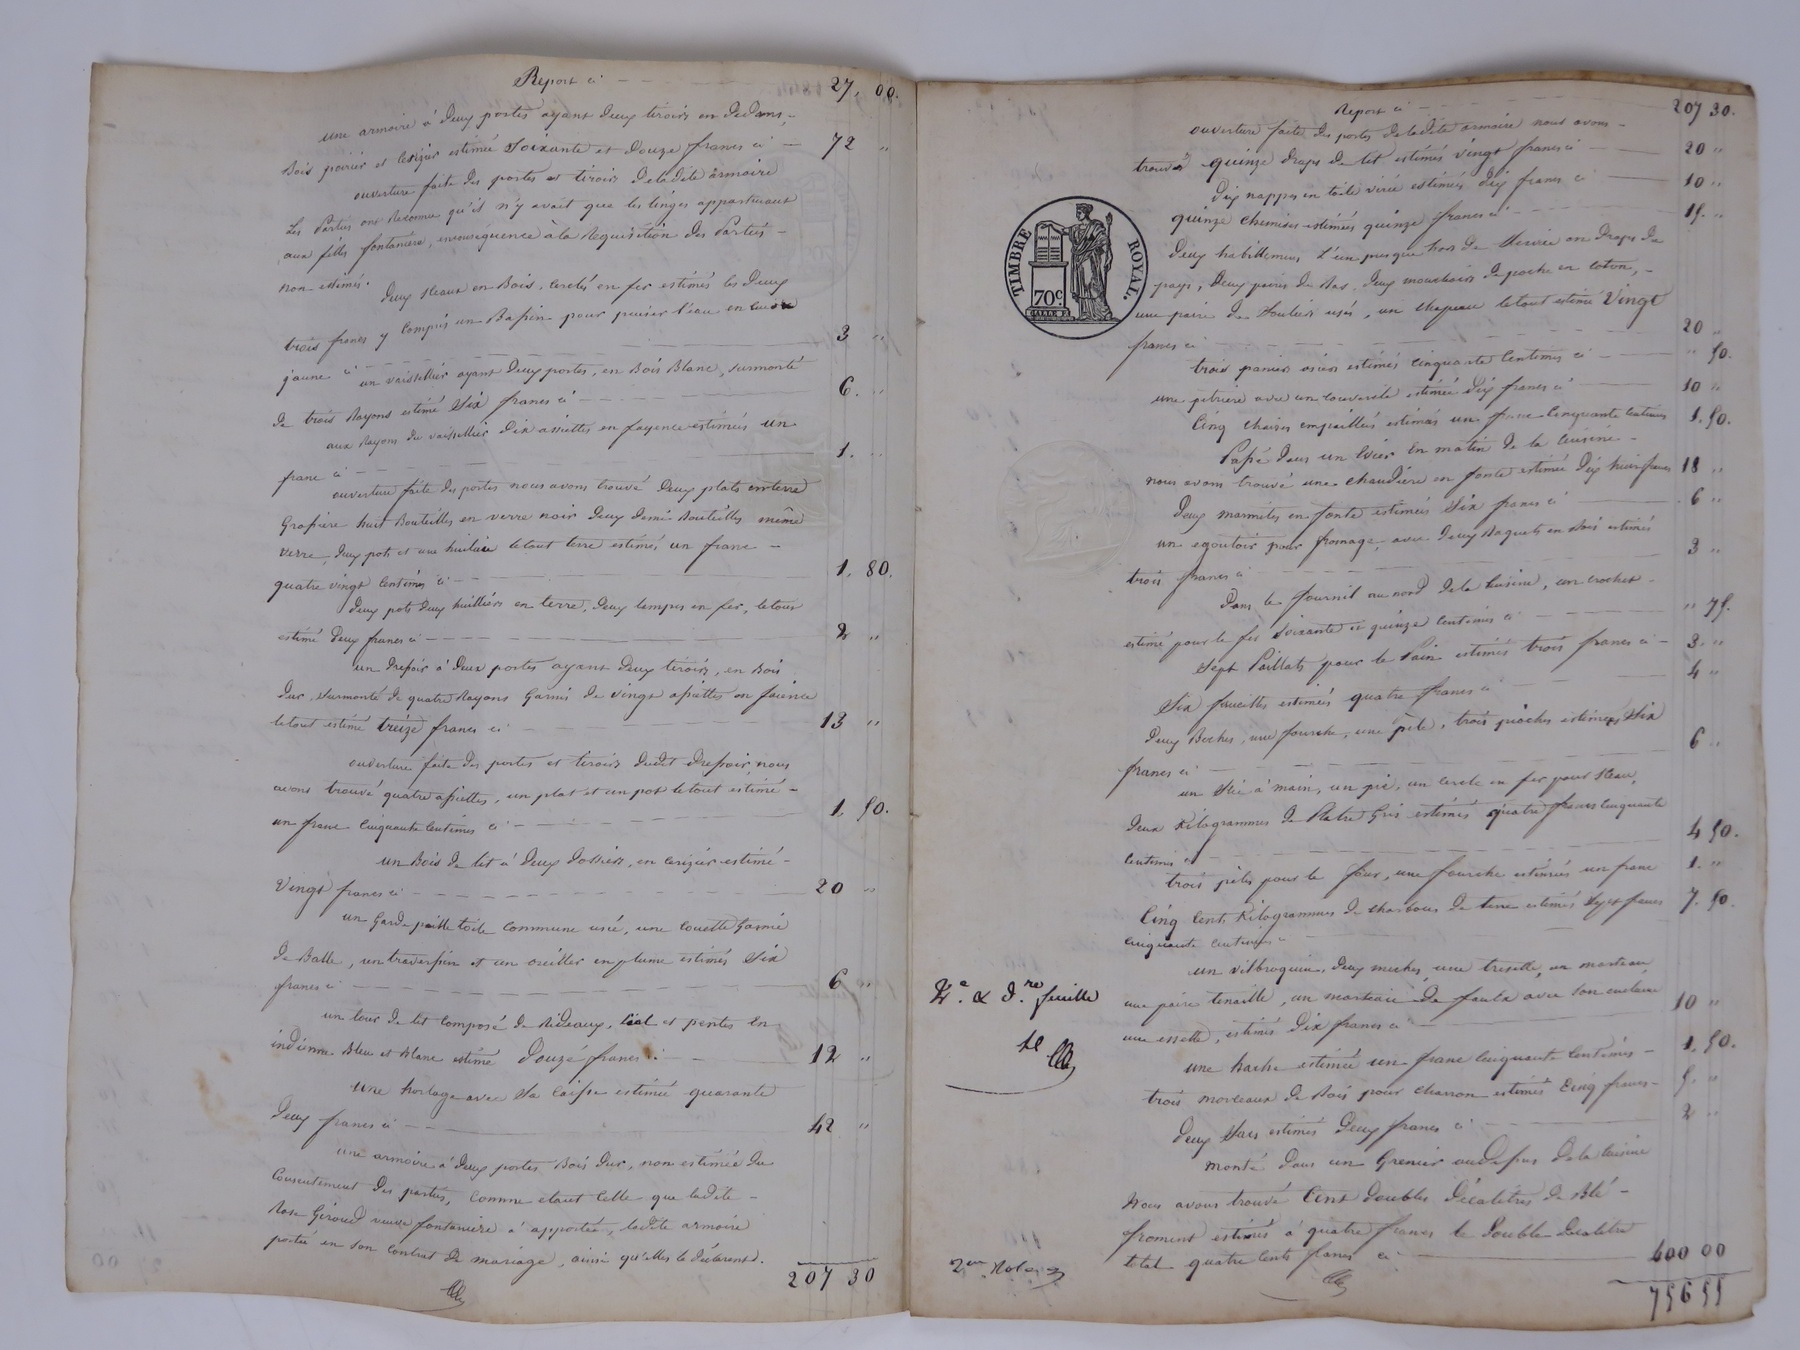 Report ci 27, 00.
une armoire à deux portes ayant deux tiroirs en dedans,
Bois poirier et cerizier estimée Soixante et douze francs ci 72 "
ouverture faite des portes et tiroirs de ladite armoire
Les Parties ont reconnu qu'il n'y avait que les linges appartenant
aux filles fontanière, en conséquence à la Requisition des Parties
non estimés.
Deux seaux en Bois, cerclés en fer estimés les deux
trois francs y compris un Bassin pour puiser l'eau en cuivre
jaune ci 3 "
un vaissellier ayant deux portes, en Bois Blanc, surmonté
de trois Rayons estimé Six francs ci 6. "
aux Rayons du vaissellier dix assiettes en fayence estimées un
franc ci 1. "
ouverture faite des portes nous avons trouvé deux plats en terre
Grossière huit Bouteilles en verre noir deux demi Bouteilles même
verre, deux pots et une huilière le tout terre estimés un franc
quatre vingt centimes ci 1, 80.
deux pots deux huilliers en terre, deux lempes en fer, le tout
estimé deux francs ci 2 "
un dressoir à deux portes ayant deux tiroirs, en Bois
dur, surmonté de quatre Rayons Garnis de vingt assiettes en faience
le tout estimé treize francs ci 13 "
ouverture faite des portes et tiroirs dudit dressoir, nous
avons trouvé quatre assiettes, un plat et un pot le tout estimé
un franc cinquante centimes ci 1, 50.
un Bois de lit à deux dossiers, en cerizier estimé
Vingt francs ci 20 "
un Garde paille toile commune usé, une couette Garnie
de Balle, un traversin et un oreiller en plume estimés Six
francs ci 6 "
un tour de lit composé de Rideaux, Ciel et pentes en
indienne Bleu et Blanc estimé Douze francs ci 12 "
une horloge avec sa caisse estimée quarante
deux francs ci 42 "
une armoire à deux portes Bois dur, non estimée du
consentement des parties, comme étant Celle que ladite
Rose Giroud veuve fontanière à apportée, ladite armoire
portée en son contrat de mariage, ainsi qu'elles le déclarent.
207 30
Report ci 207 30.
ouverture faite des portes de ladite armoire nous avons
trouvé quinze draps de lit estimés vingt francs ci 20 "
dix nappes en toile estimées dix francs ci 10 "
quinze chemises estimées quinze francs ci 15. "
deux habillemens l'un presque hors de service en draps du
pays, deux paires de Bas, deux mouchoirs de poche en coton,
une paire de Souliers usés, un chapeau le tout estimé Vingt
francs ci 20 "
trois paniers osiers estimés cinquante centimes ci " 50.
une petriere avec un couvercle estimée dix francs ci 10 "
Cinq chaises empaillées estimées un franc cinquante centimes 1. 50.
Passé dans un Evier en matin de la cuisine
nous avons trouvé une chaudière en fonte estimée dix huit francs 18 "
deux marmites en fonte estimées Six francs ci 6 "
un egoutoir pour fromage, avec deux Baquets en Bois estimés
trois francs ci 3 "
dans le fournil au nord de la cuisine, un crochet
estimé pour le fer soixante et quinze centimes ci " 75.
Sept Paillats pour le Pain estimés trois francs ci 3. "
Six faucilles estimées quatre francs ci 4 "
deux Beches, une fourche, une pèle, trois pioches estimées Six
francs ci 6 "
un Scie à main, un pic, un cercle en fer pour seau,
deux Kilogrammes de Platre Gris estimés quatre francs cinquante
centimes ci 4 50.
trois pèles pour le four, une fourche estimées un franc 1. "
Cinq Cent Kilogrammes de charbon de terre estimés Sept francs 7. 50.
cinquante centimes
un vilbroquin, deux meches, une treselle, un marteau,
une paire tenaille, un marteau de faulx avec son enclume
une essette, estimés Dix francs ci 10 "
une hache estimée un franc cinquante centimes 1. 50.
trois morceaux de Bois pour charron estimés Cinq francs 5. "
deux Sacs estimés deux francs ci 2 "
monté dans un Grenier au dessus de la cuisine
Nous avons trouvé Cent doubles décalitres de Blé
froment estimés à quatre francs le double décalitre
total quatre cents francs ci 400 00
756 55
TIMBRE ROYAL.
70c.
2e. & d.re feuille
2me Role